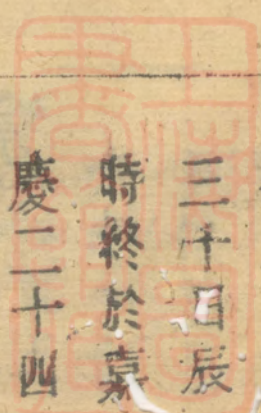 三十日辰
時終於嘉
慶二十四